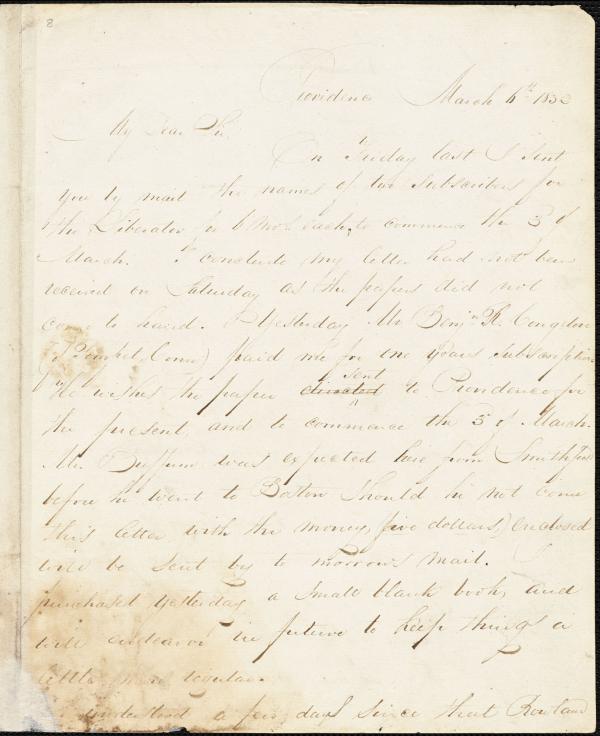 8
Providence March 6th 1832
My Dear Sir,
On Friday last I sent
you by mail the names of two subscribers for
the Liberator for 6 mos. each, to commence the 3 of
March. I conclude my letter had not been
received on Saturday as the papers did not
come to hand. Yesterday Mr Benjn R. Congdon
Pomfret Conn) paid me for one years subscription
He wishes the paper directed sent to Providence for
the present, and to commence the 3 of March.
Mr. Buffum was expected here from Smithfield
before he went to Boston should he not come
this letter with the money, (five dollars) enclosed
will be sent by to morrows mail. I
purchased yesterday a small blank book, and
will endeavor in future to keep things a
little more regular.
understood a few days since that Rowland